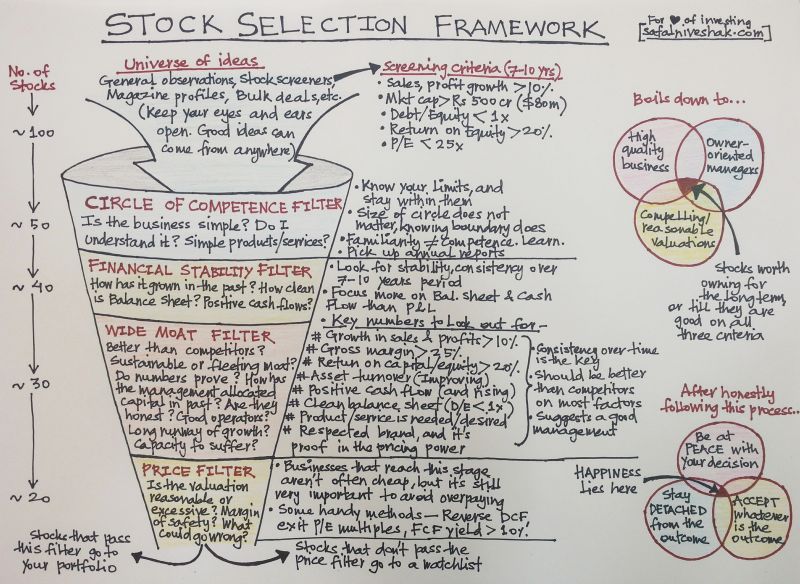 STOCK SELECTION FRAMEWORK
For ♥ of investing
[safalniveshak.com]
No. of
Stocks
~ 100
~ 50
~ 40
~ 30
~ 20
Universe of ideas
General observations, Stock screeners,
Magazine profiles, Bulk deals, etc.
(Keep your eyes and ears
open. Good ideas can
come from anywhere)
Screening criteria (7-10 yrs)
• Sales, profit growth > 10%
• Mkt cap > Rs 500 cr ($80m)
• Debt/Equity < 1x
• Return on Equity > 20%
• P/E < 25x
CIRCLE OF COMPETENCE FILTER
Is the business simple? Do I
understand it? Simple products/services?
• Know your limits, and
stay within them
• Size of circle does not
matter, knowing boundary does
• Familiarity ≠ competence. Learn.
Pick up annual reports
FINANCIAL STABILITY FILTER
How has it grown in the past? How clean
is Balance Sheet? Positive cash flows?
• Look for stability, consistency over
7-10 years period
• Focus more on Bal. sheet & Cash
Flow than P&L
WIDE MOAT FILTER
Better than competitors?
Sustainable or fleeting moat?
Do numbers prove? How has
the management allocated
capital in past? Are they
honest? Good operators?
Long runway of growth?
Capacity to suffer?
• Key numbers to look out for -
# Growth in sales & profits > 10%
# Gross margin > 25%
# Return on capital/equity > 20%
# Asset turnover (Improving)
# Positive Cash flow (and rising)
# Clean balance sheet (D/E < 1x)
# Product/service is needed/desired
# Respected brand, and it's
proof in the pricing power
• Consistency over-time
is the key
• Should be better
then competitors
on most factors
• Suggests a good
management
PRICE FILTER
Is the valuation
reasonable or
excessive? Margin
of safety? What
could go wrong?
• Businesses that reach this stage
aren't often cheap, but it's still
very important to avoid overpaying
• Some handy methods — Reverse DCF,
exit P/E multiples, FCF yield > 10%
Stocks that pass
this filter go to
your portfolio
Stocks that don't pass the
price filter go to a watchlist
Boils down to...
High
quality
business
Owner-
oriented
managers
Compelling/
reasonable
valuations
Stocks worth
owning for
the long term,
or till they are
good on all
three criteria
After honestly
following this process..
Be at
PEACE with
your decision
HAPPINESS
Lies here
Stay
DETACHED
from the
outcome
ACCEPT
whatever
is the
outcome